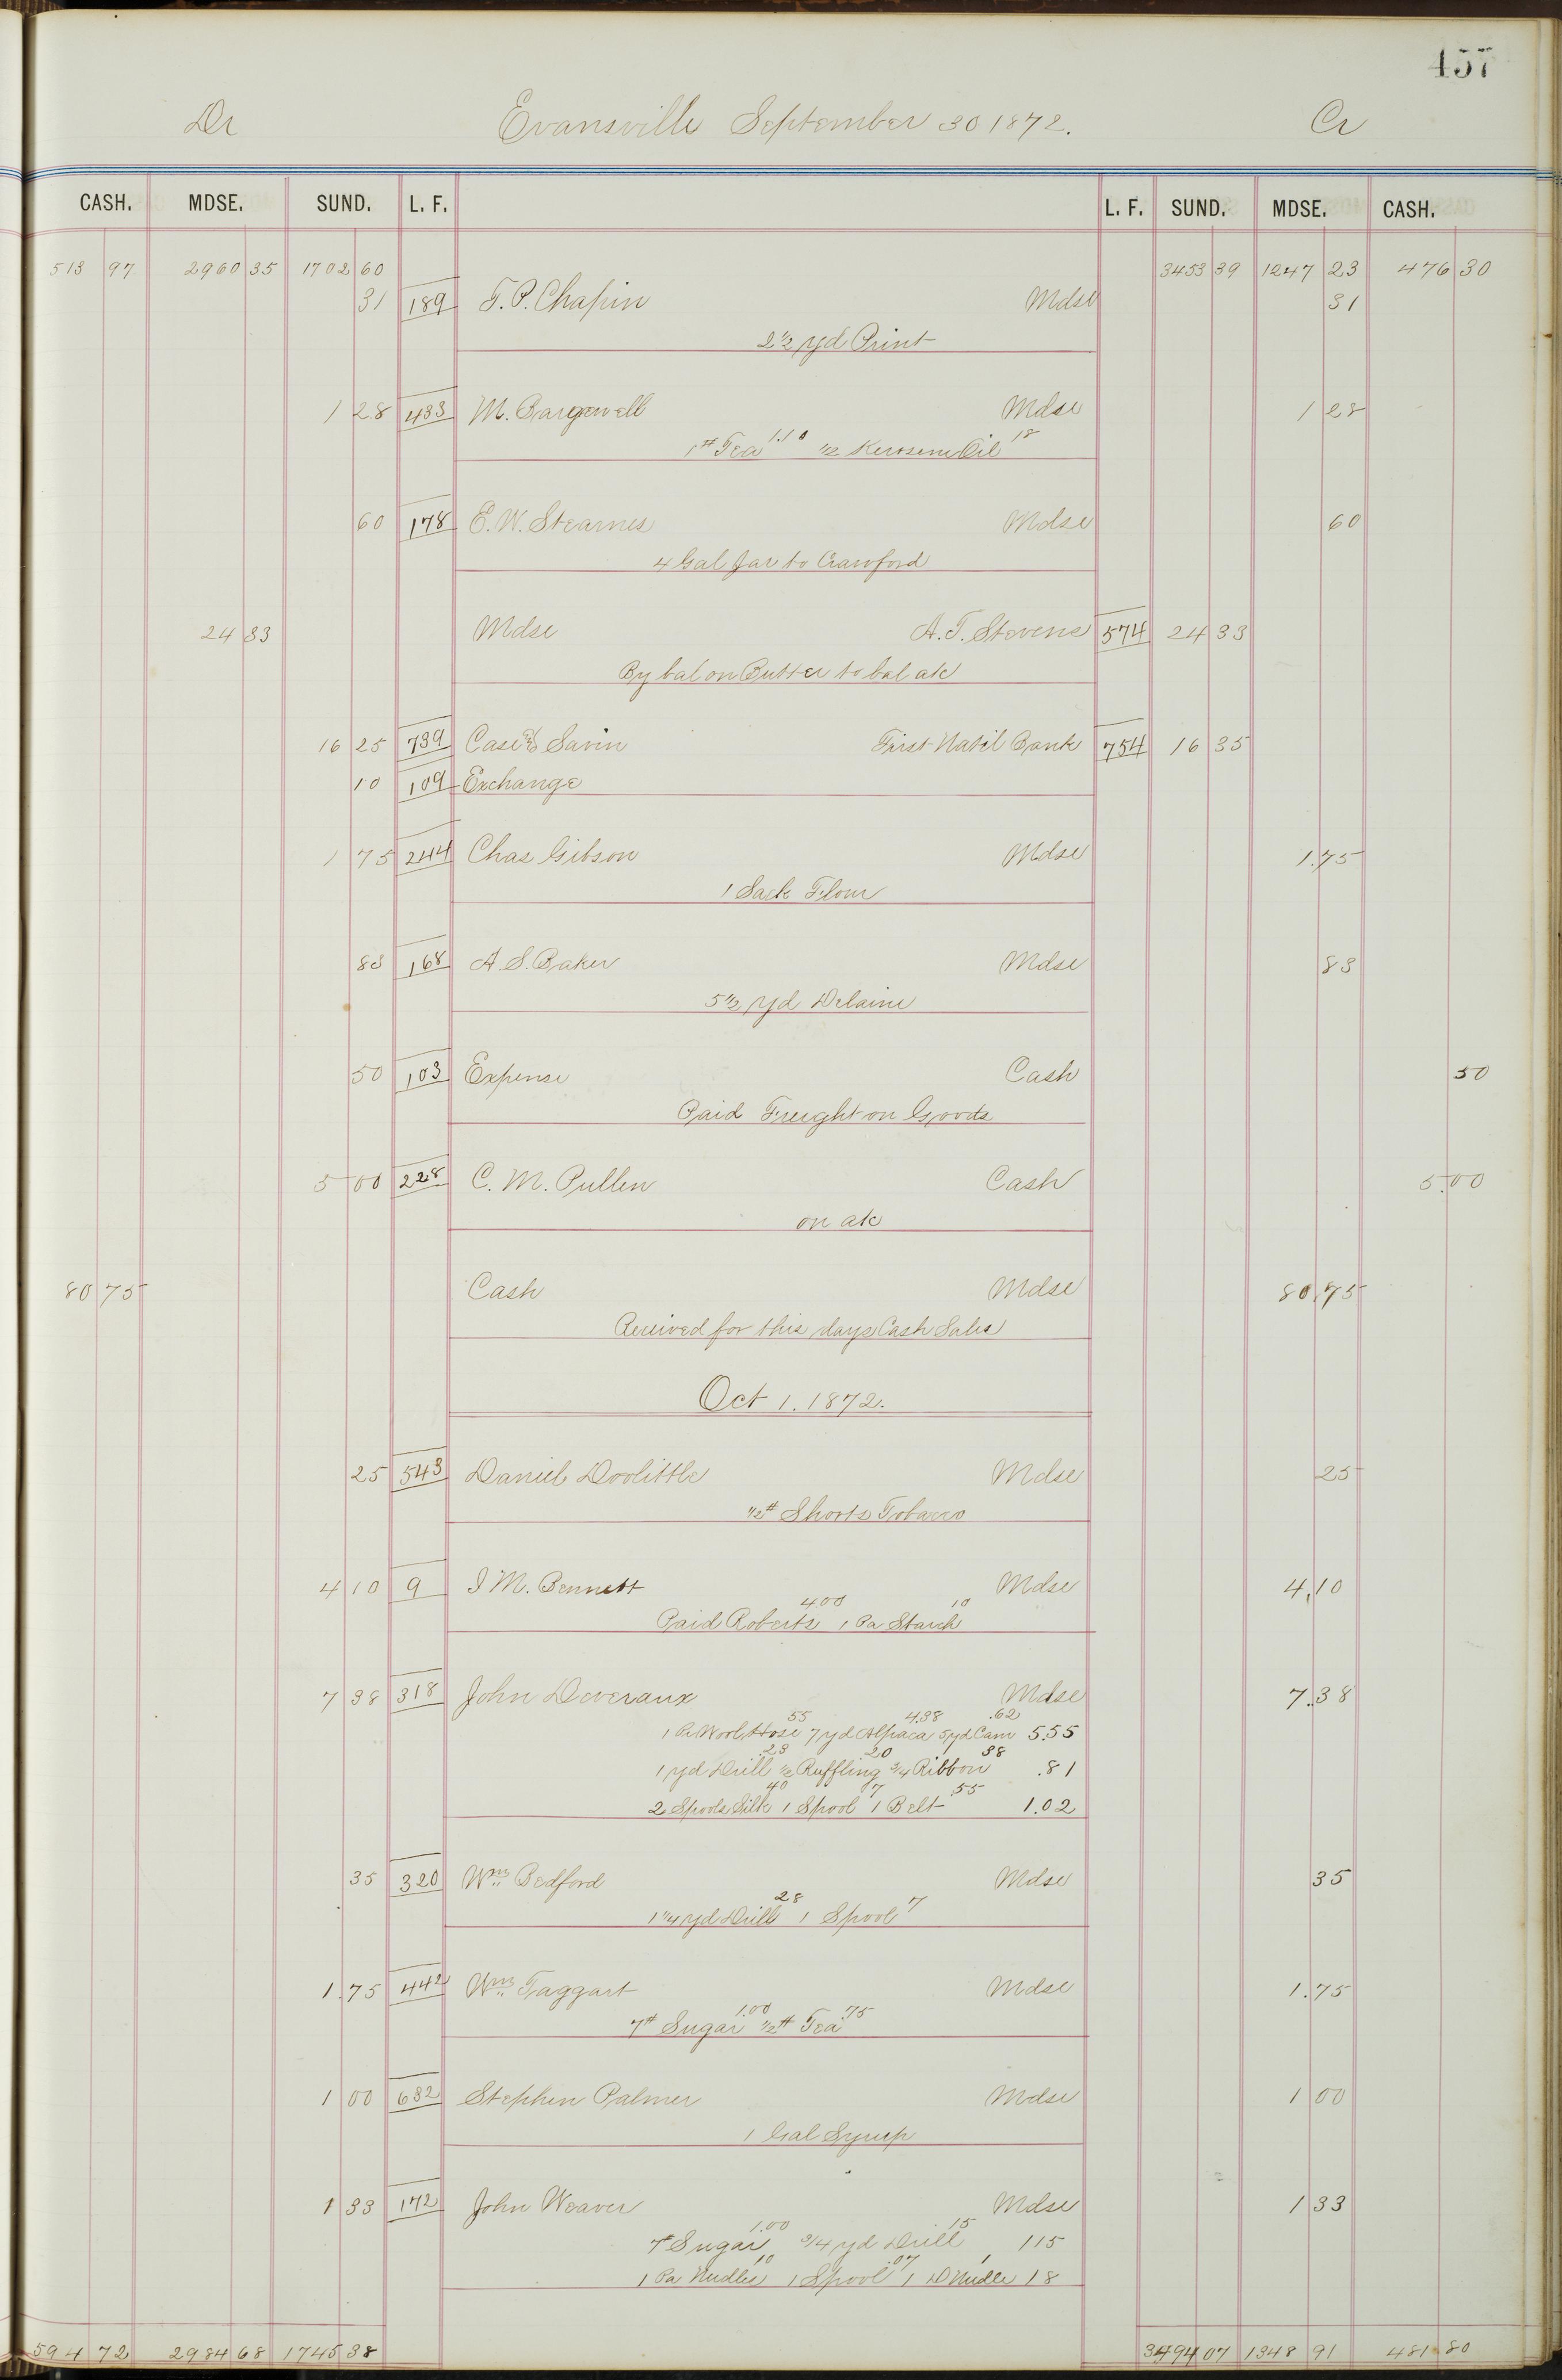 457
Dr Evansville September 30 1872. Cr
CASH. MDSE. SUND. L. F. L. F. SUND. MDSE. CASH.
513 97 2960 35 1702 60 3453 39 1247 23 476 30
31 189 F. P. Chapin Mdse 31
2 1/2 yd Print
1 28 433 M. Bargewell Mdse 1 28
1# Tea 1.10 1/2 Kerosene Oil 18
60 178 E. W. Stearnes Mdse 60
4 Gal Jar to Crawford
24 33 Mdse A. T. Stevens 574 24 33
By bal on Butter to bal a/c
16 25 739 Case & Savin First Nat'l Bank 754 16 35
10 109 Exchange
1 75 244 Chas Gibson Mdse 1.75
1 Sack Flour
83 168 A. S. Baker Mdse 83
5 1/2 yd Delaine
50 103 Expense Cash 50
Paid Freight on Goods
5 00 228 C. M. Pullen Cash 5.00
on a/c
80 75 Cash Mdse 80.75
Received for this days Cash Sales
Oct 1. 1872.
25 543 Daniel Doolittle Mdse 25
1/2# Shorts Tobacco
4 10 9 I M. Bennett Mdse 4.10
Paid Roberts 4.00 1 Pa Starch 10
7 38 318 John Deveraux Mdse 7.38
1 Pr Wool Hose 55 7 yd Alpaca 4.38 5 yd Cam .62 5.55
1 yd Drill .23 1/2 Ruffling 20 3/4 Ribbon 38 .81
2 Spools Silk 40 1 Spool 7 1 Belt .55 1.02
35 320 Wm Bedford Mdse 35
1 1/4 yd Drill 28 1 Spool 7
1.75 442 Wm Taggart Mdse 1.75
7# Sugar 1.00 1/2# Tea .75
1 00 682 Stephen Palmer Mdse 1 00
1 Gal Syrup
1 33 172 John Weaver Mdse 1 33
7# Sugar 1.00 3/4 yd Drill 15 1 15
1 Pa Nudles 10 1 Spool .07 1 D Nudle 1 18
594 72 2984 68 1745 38 3494 07 1348 91 481 80